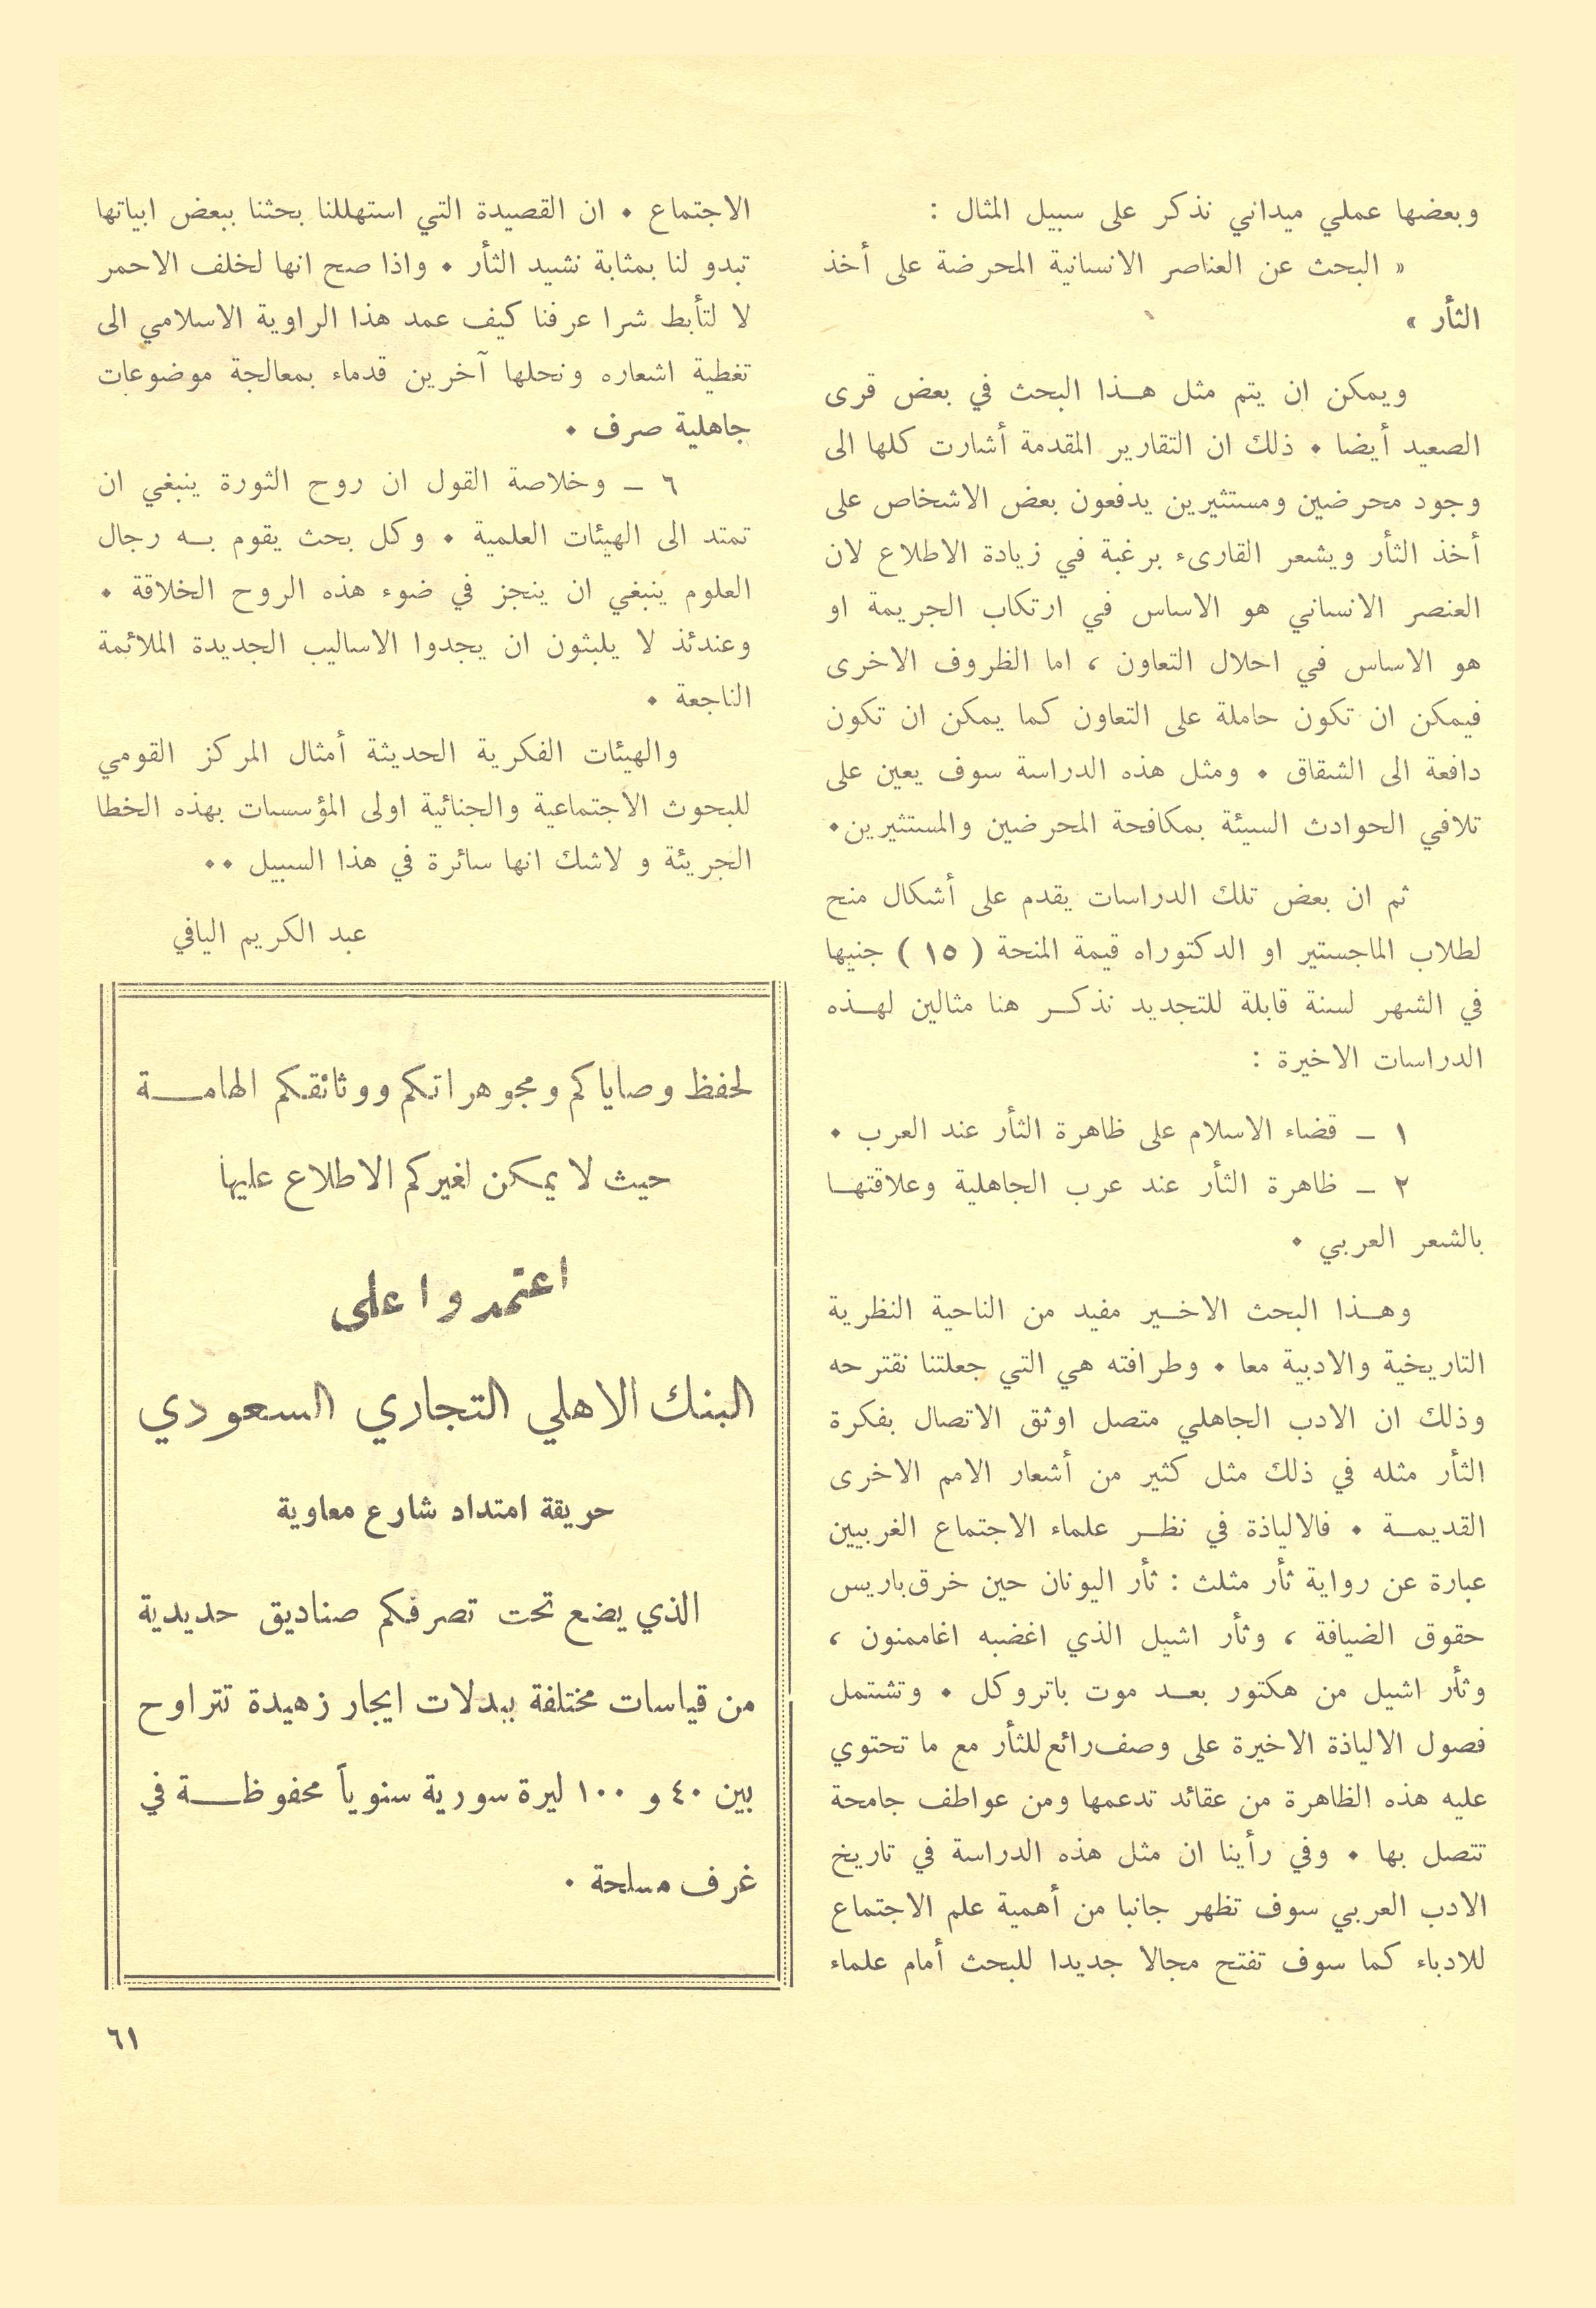 وبعضها عملي ميداني نذكر على سبيل المثال :
« البحث عن العناصر الانسانية المحرضة على أخذ
الثأر »
ويمكن ان يتم مثل هــذا البحث في بعض قرى
الصعيد أيضا ٠ ذلك ان التقارير المقدمة أشارت كلها الى
وجود محرضين ومستثيرين يدفعون بعض الاشخاص على
أخذ الثأر ويشعر القارىء برغبة في زيادة الاطلاع لان
العنصر الانساني هو الاساس في ارتكاب الجريمة او
هو الاساس في احلال التعاون ، اما الظروف الاخرى
فيمكن ان تكون حاملة على التعاون كما يمكن ان تكون
دافعة الى الشقاق ٠ ومثل هذه الدراسة سوف يعين على
تلافي الحوادث السيئة بمكافحة المحرضين والمستثيرين٠
ثم ان بعض تلك الدراسات يقدم على أشكال منح
لطلاب الماجستير او الدكتوراه قيمة المنحة ( ١٥ ) جنيها
في الشهر لسنة قابلة للتجديد نذكــر هنا مثالين لهــذه
الدراسات الاخيرة :
١ ـ قضاء الاسلام على ظاهرة الثأر عند العرب ٠
٢ ـ ظاهرة الثأر عند عرب الجاهلية وعلاقتهــا
بالشعر العربي ٠
وهــذا البحث الاخــير مفيد من الناحية النظرية
التاريخية والادبية معا ٠ وطرافته هي التي جعلتنا نقترحه
وذلك ان الادب الجاهلي متصل اوثق الاتصال بفكرة
الثأر مثله في ذلك مثل كثير من أشعار الامم الاخرى
القديمــة ٠ فالالياذة في نظــر علماء الاجتماع الغربيين
عبارة عن رواية ثأر مثلث : ثأر اليونان حين خرق باريس
حقوق الضيافة ، وثأر اشيل الذي اغضبه اغاممنون ،
وثأر اشيل من هكتور بعــد موت باتروكل ٠ وتشتمل
فصول الالياذة الاخيرة على وصف رائع للثأر مع ما تحتوي
عليه هذه الظاهرة من عقائد تدعمها ومن عواطف جامحة
تتصل بها ٠ وفي رأينا ان مثل هذه الدراسة في تاريخ
الادب العربي سوف تظهر جانبا من أهمية علم الاجتماع
للادباء كما سوف تفتح مجالا جديدا للبحث أمام علماء
الاجتماع ٠ ان القصيدة التي استهللنا بحثنا ببعض ابياتها
تبدو لنا بمثابة نشيد الثأر ٠ واذا صح انها لخلف الاحمر
لا لتأبط شرا عرفنا كيف عمد هذا الراوية الاسلامي الى
تغطية اشعاره ونحلها آخرين قدماء بمعالجة موضوعات
جاهلية صرف ٠
٦ ـ وخلاصة القول ان روح الثورة ينبغي ان
تمتد الى الهيئات العلمية ٠ وكل بحث يقوم بــه رجال
العلوم ينبغي ان ينجز في ضوء هذه الروح الخلاقة ٠
وعندئذ لا يلبثون ان يجدوا الاساليب الجديدة الملائمة
الناجعة ٠
والهيئات الفكرية الحديثة أمثال المركز القومي
للبحوث الاجتماعية والجنائية اولى المؤسسات بهذه الخطا
الجريئة و لاشك انها سائرة في هذا السبيل ٠٠
عبد الكريم اليافي
لحفظ وصاياكم ومجوهراتكم ووثائقكم الهامــة
حيث لا يمكن لغيركم الاطلاع عليها
اعتمدوا على
البنك الاهلي التجاري السعودي
حريقة امتداد شارع معاوية
الذي يضع تحت تصرفكم صناديق حديدية
من قياسات مختلفة ببدلات ايجار زهيدة تتراوح
بين ٤٠ و ١٠٠ ليرة سورية سنوياً محفوظــة في
غرف مسلحة ٠
٦١